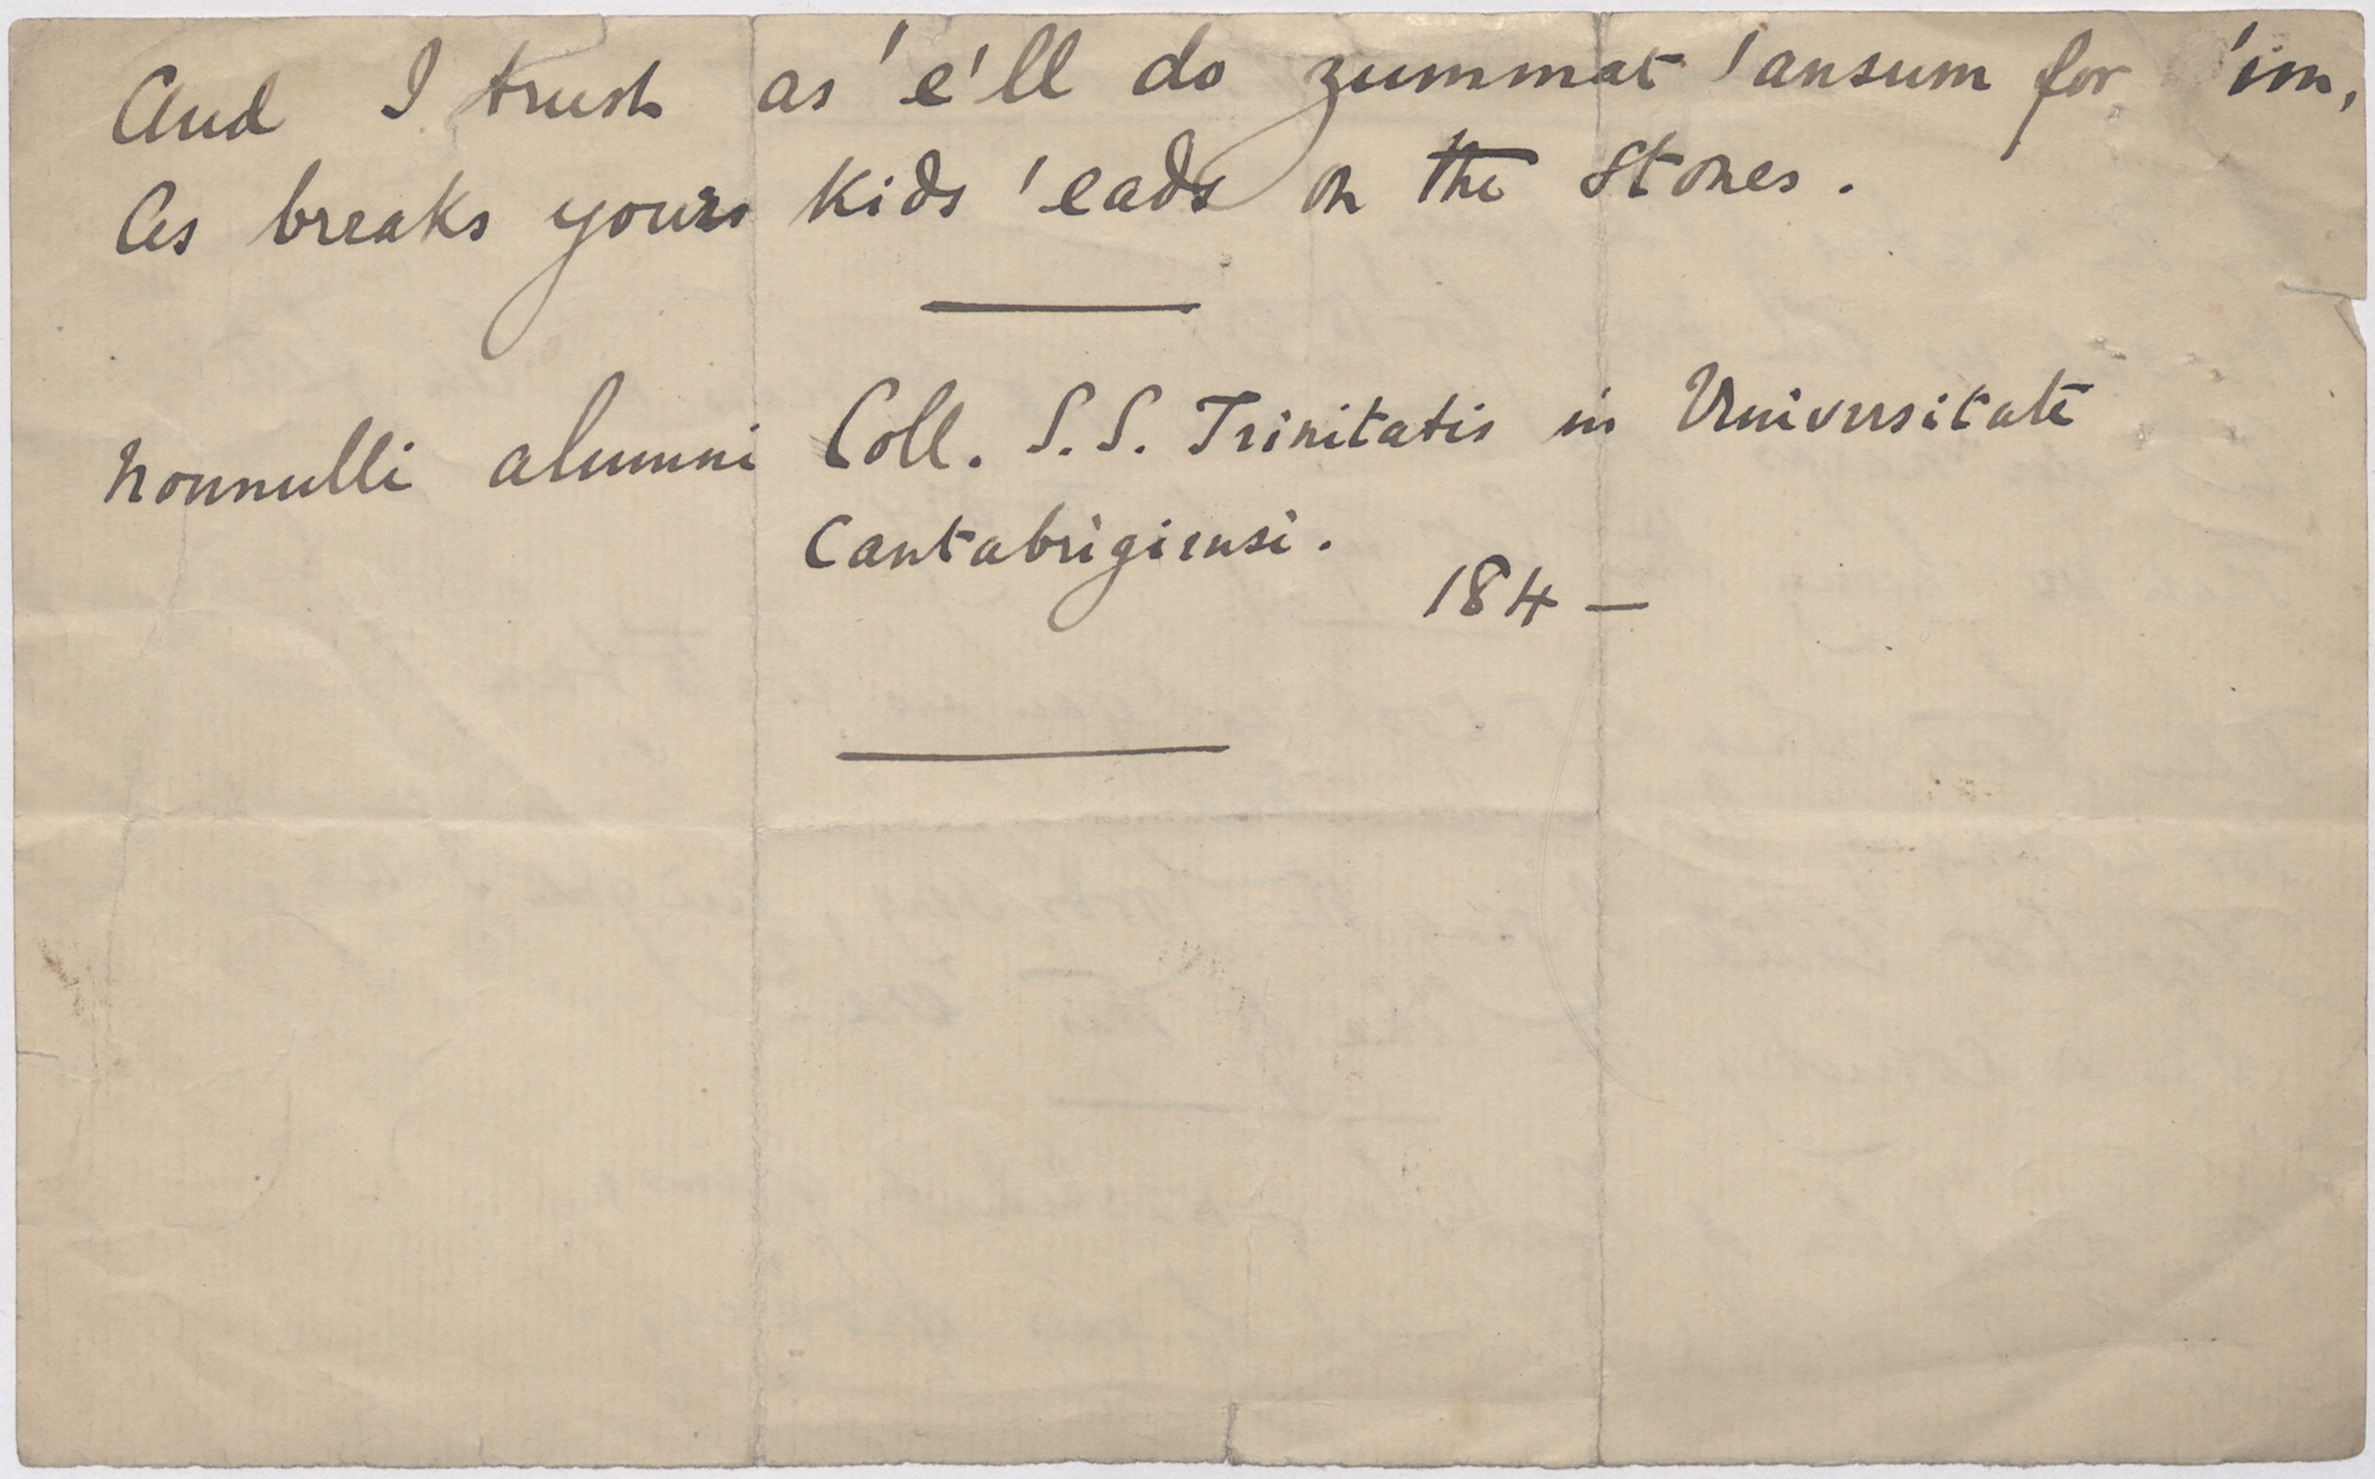 And I trust as 'e'll do zummat 'ansum for 'im,
As breaks yours kids 'eads on the stones.
nonnulli alumni Coll. S.S. Trinitatis in Universitate
Cantabrigiensi.
184—